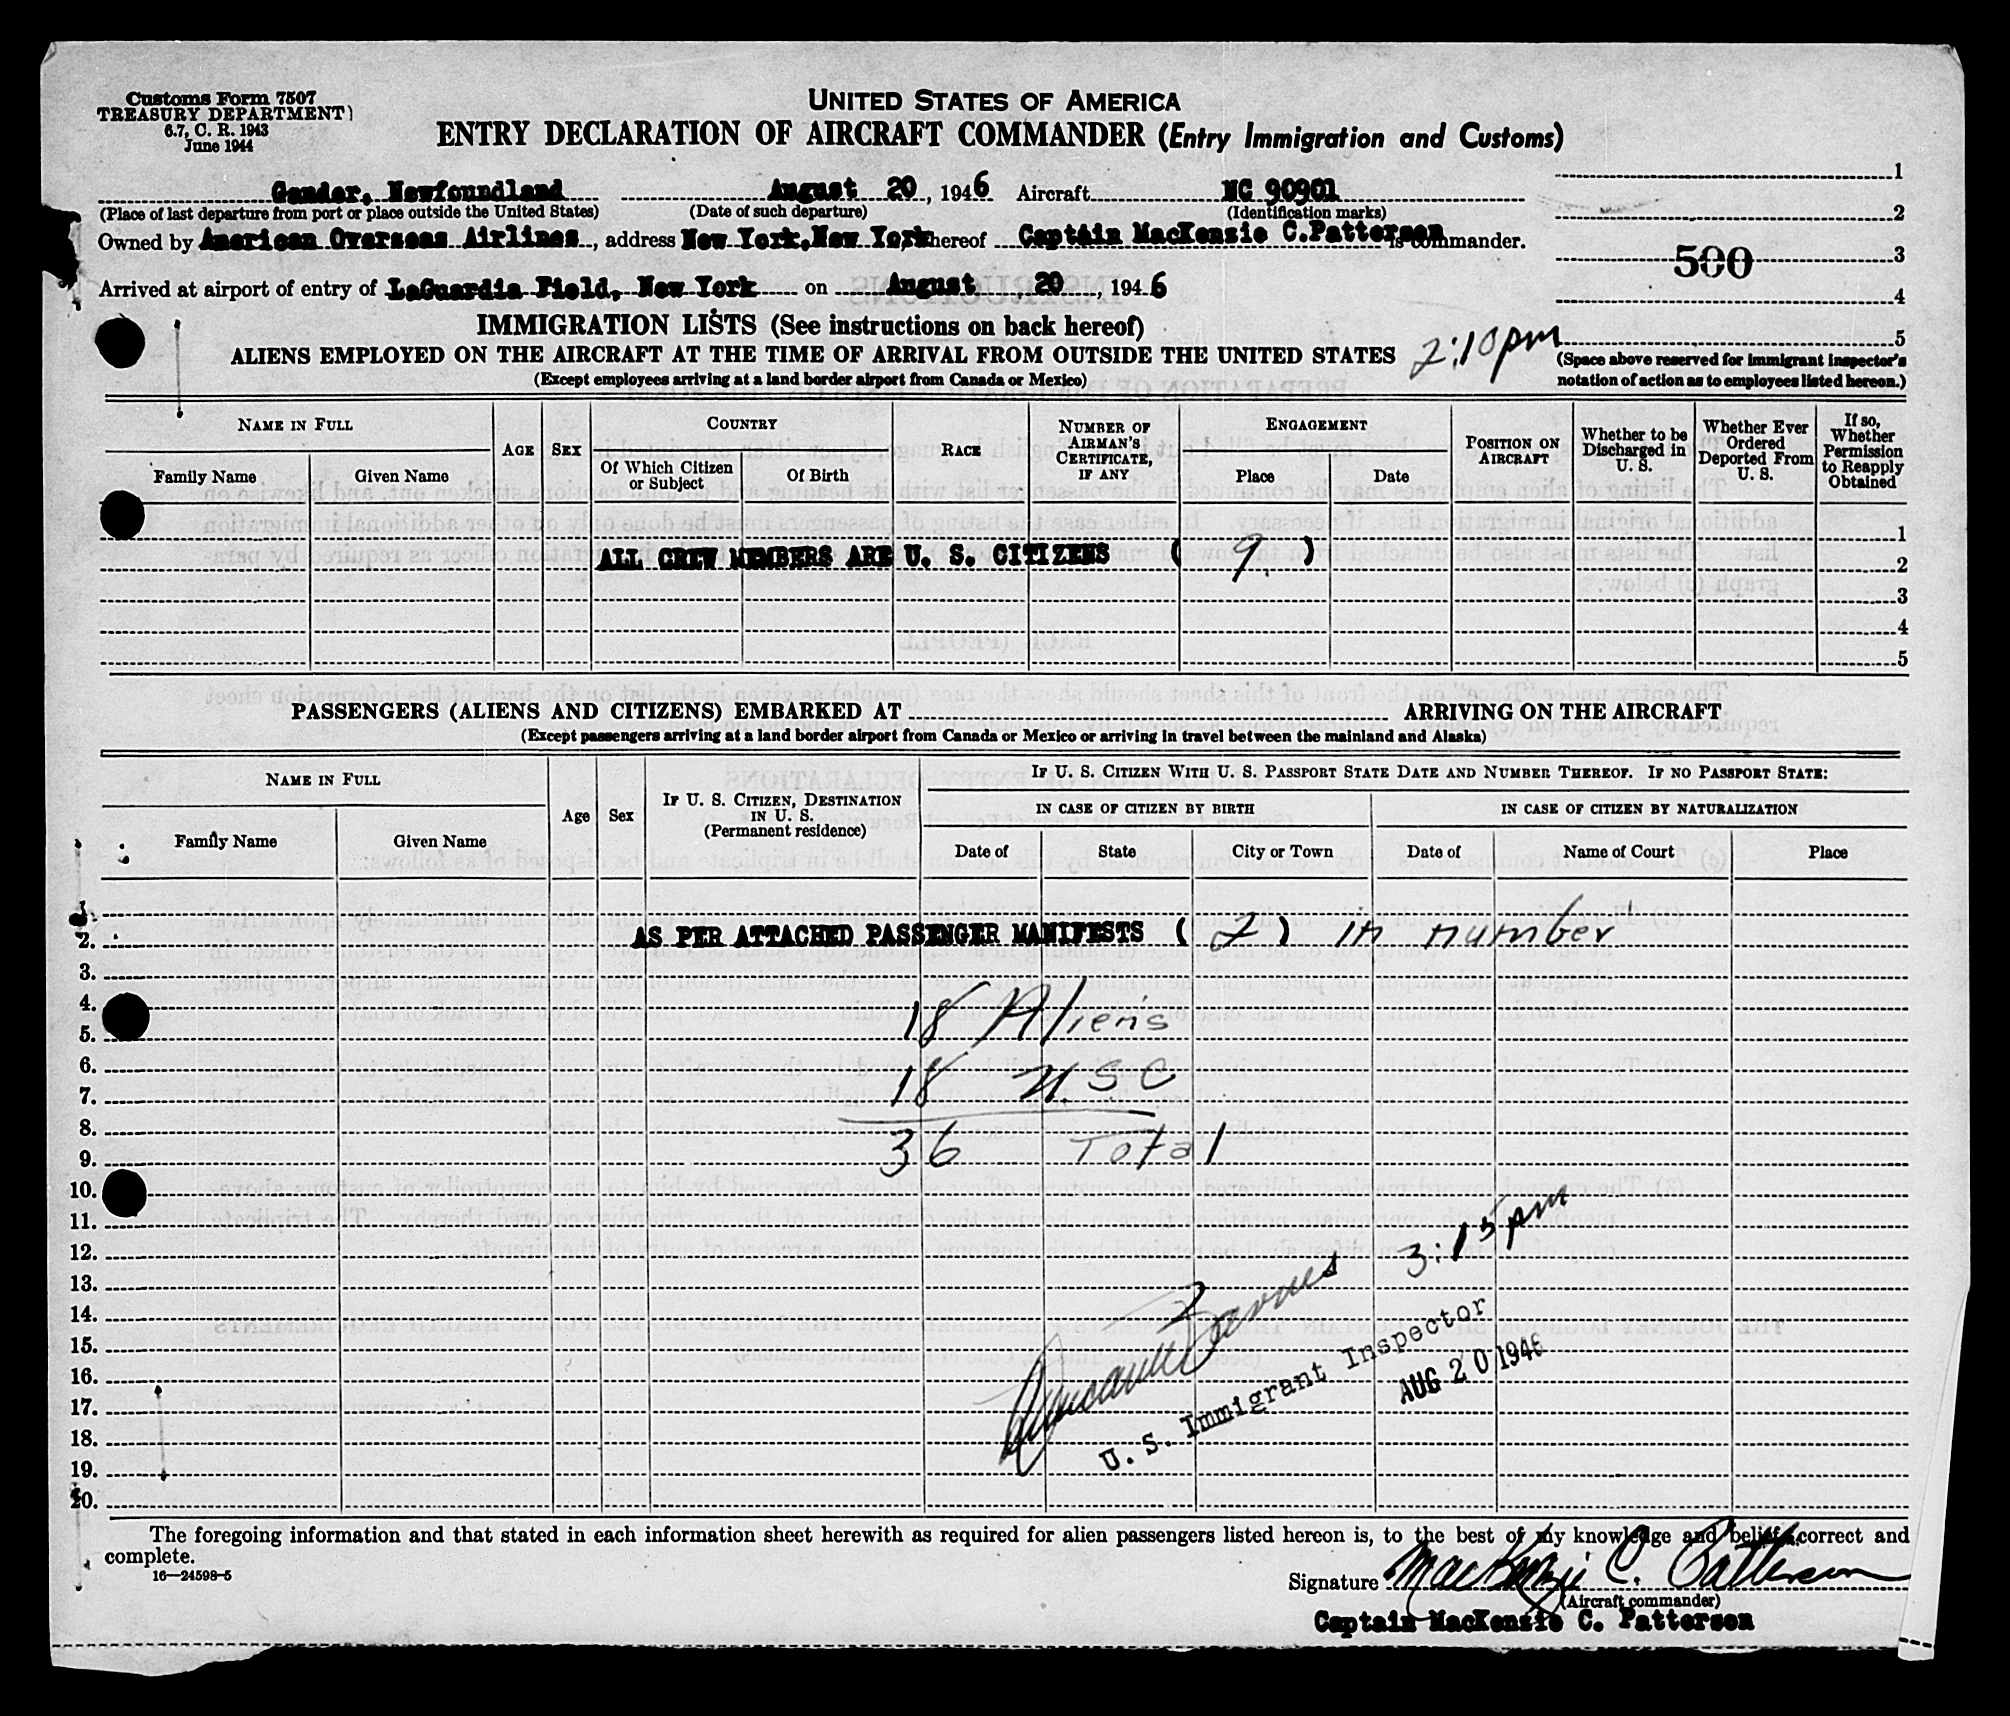 Customs Form 7507
TREASURY DEPARTMENT
6.7, C. R. 1943
June 1944
UNITED STATES OF AMERICA
ENTRY DECLARATION OF AIRCRAFT COMMANDER (Entry Immigration and Customs)
Gander, Newfoundland August 20, 1946 Aircraft NC 90901
(Place of last departure from port or place outside the United States) (Date of such departure) (Identification marks)
Owned by American Overseas Airlines, address New York, New York hereof Captain MacKenzie C. Patterson is commander.
Arrived at airport of entry of LaGuardia Field, New York on August 20, 1946
1
2
500 3
4
5
(Space above reserved for immigrant inspector's
notation of action as to employees listed hereon.)
IMMIGRATION LISTS (See instructions on back hereof)
ALIENS EMPLOYED ON THE AIRCRAFT AT THE TIME OF ARRIVAL FROM OUTSIDE THE UNITED STATES 2:10pm
(Except employees arriving at a land border airport from Canada or Mexico)
NAME IN FULL
Family Name Given Name
AGE SEX
COUNTRY
Of Which Citizen or Subject Of Birth
RACE
NUMBER OF AIRMAN'S CERTIFICATE, IF ANY
ENGAGEMENT
Place Date
POSITION ON AIRCRAFT
Whether to be Discharged in U. S.
Whether Ever Ordered Deported From U. S.
If so, Whether Permission to Reapply Obtained
1
ALL CREW MEMBERS ARE U. S. CITIZENS ( 9 ) 2
3
4
5
PASSENGERS (ALIENS AND CITIZENS) EMBARKED AT ARRIVING ON THE AIRCRAFT
(Except passengers arriving at a land border airport from Canada or Mexico or arriving in travel between the mainland and Alaska)
NAME IN FULL
Family Name Given Name
Age Sex
IF U. S. CITIZEN, DESTINATION IN U. S.
(Permanent residence)
IF U. S. CITIZEN WITH U. S. PASSPORT STATE DATE AND NUMBER THEREOF. IF NO PASSPORT STATE:
IN CASE OF CITIZEN BY BIRTH IN CASE OF CITIZEN BY NATURALIZATION
Date of State City or Town Date of Name of Court Place
1.
2. AS PER ATTACHED PASSENGER MANIFESTS ( 2 ) in number
3.
4.
5. 18 Aliens
6.
7. 18 U.S C
8.
9. 36 Total
10.
11.
12. 3:15pm
13.
14.
15.
16.
17.
18.
19.
20.
U. S. Immigrant Inspector
AUG 20 1946
The foregoing information and that stated in each information sheet herewith as required for alien passengers listed hereon is, to the best of my knowledge and belief, correct and
complete.
16—24598-5
Signature MacKenzie C. Patterson
(Aircraft commander)
Captain MacKenzie C. Patterson